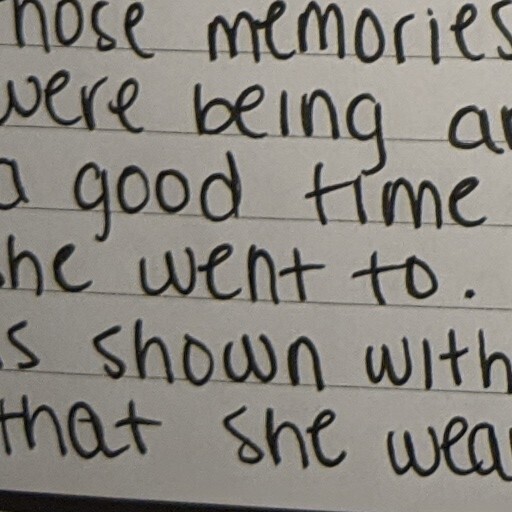 hose memories
were being ar
a good time
he went to.
s shown with
that she wea